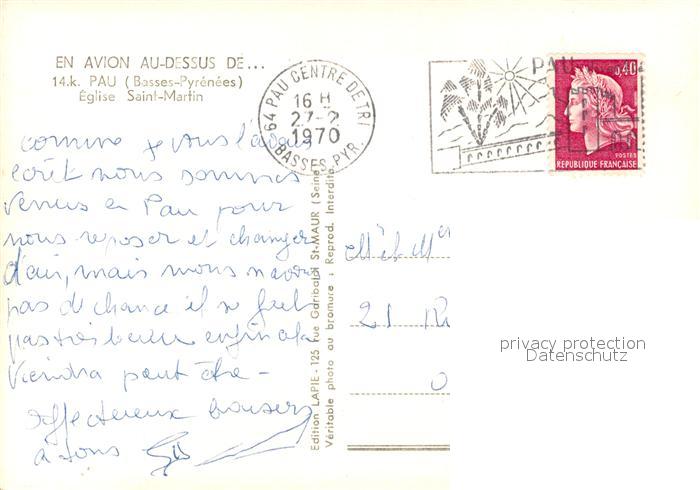 EN AVION AU-DESSUS DE...
14.k. PAU (Basses-Pyrénées)
Église Saint-Martin
64 PAU CENTRE DE TRI
16 H
27-2
1970
BASSES-PYR.
PAU
0,40
POSTES
REPUBLIQUE FRANÇAISE
comme je vous l'avais
écrit nous sommes
venus en Pau pour
nous reposer et changer
d'air, mais nous n'avons
pas de chance il ne fait
pas très beau enfin cela
viendra peut être -
affectueux baisers
à tous
Edition LAPIE - 125 rue Garibaldi St-MAUR (Seine)
Véritable photo au bromure : Reprod. Interdite.
M. et M
21 R
privacy protection
Datenschutz